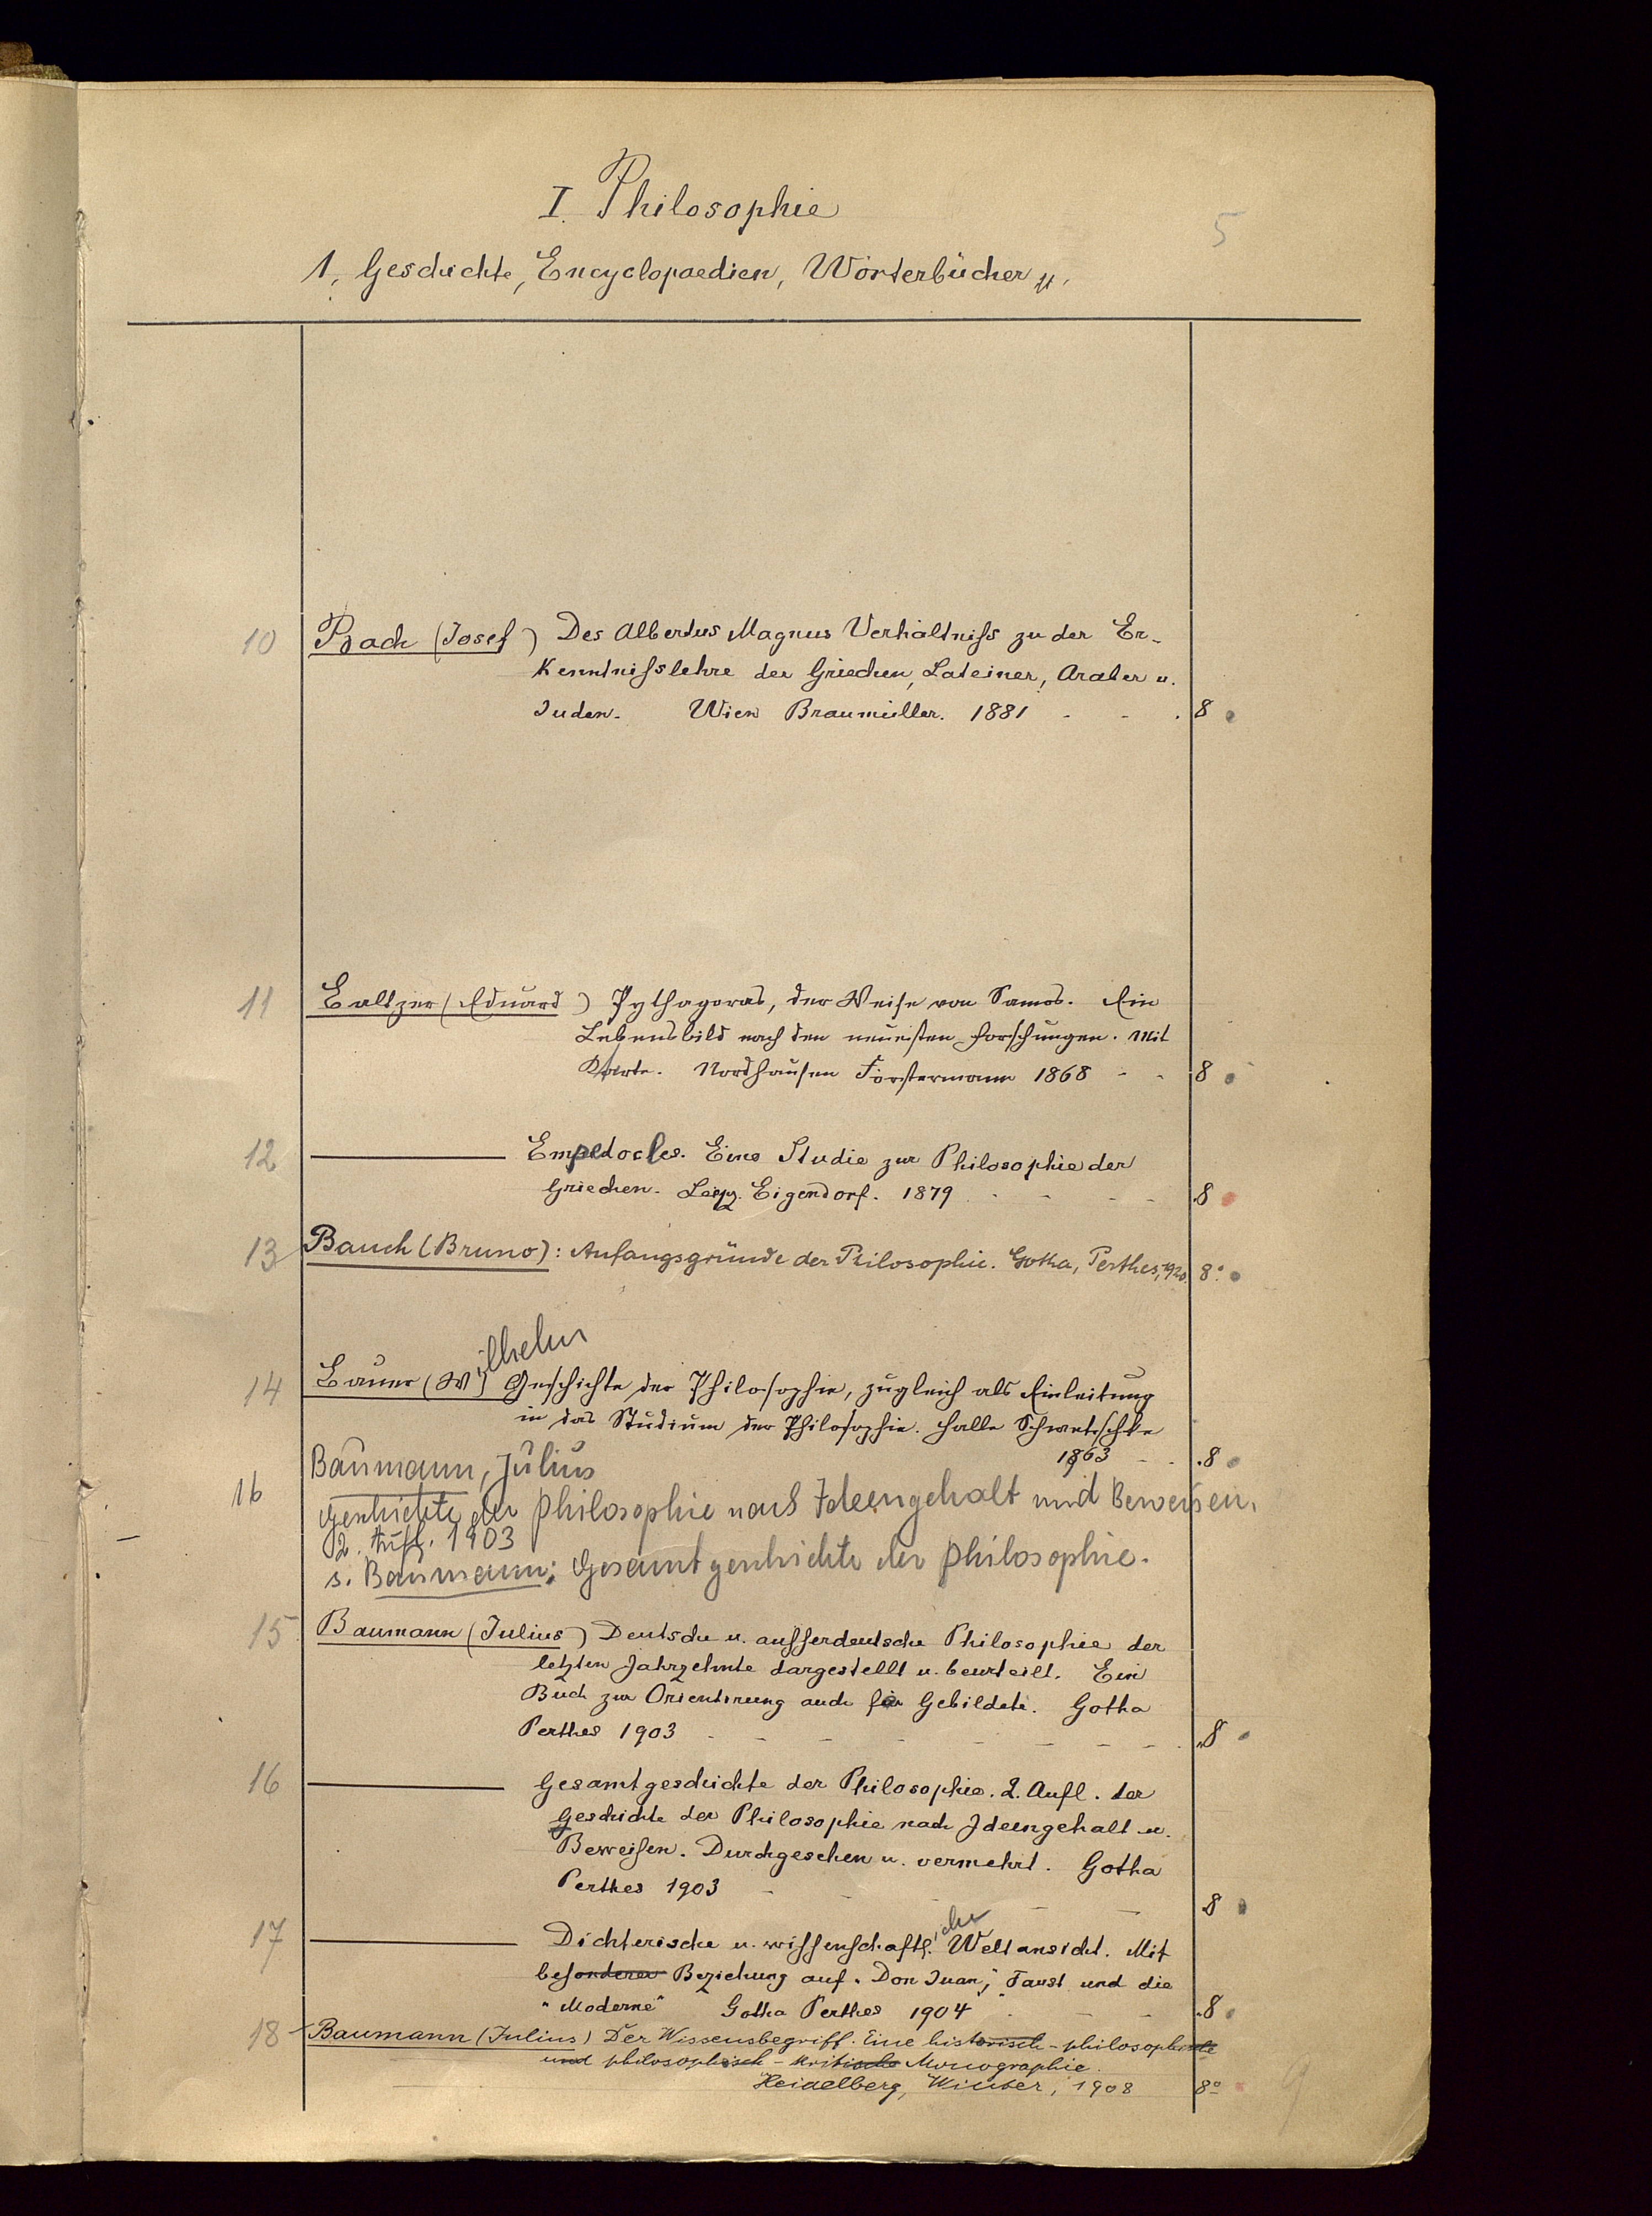 I. Philosophie
5
1, Geschichte, Encyclopaedien, Wörterbücher
10 Bach (Josef) Des Albertus Magnus Verhältniss zu der Er-
kenntnisslehre der Griechen, Lateiner, Araber u.
Juden. Wien Braumüller. 1881 - - . 8
11 Baltzer (Eduard) Pythagoras, der Weise von Samos. Ein
Lebensbild nach den neuesten Forschungen. Mit
Karte. Nordhausen Förstermann 1868 - - 8
12 Empedocles. Eine Studie zur Philosophie der
Griechen. Leipz. Eigendorf. 1879 . - - - 8
13 Bauch (Bruno): Anfangsgründe der Philosophie. Gotha, Perthes, 1920. 8°
14 Bauer (Wilhelm) Geschichte der Philosophie, zugleich als Einleitung
in das Studium der Philosophie. Halle Schwetschke
1863 - . . 8
Baumann, Julius
16 Geschichte der Philosophie nach Ideengehalt und Beweisen.
2. Aufl. 1903
s. Baumann: Gesamtgeschichte der Philosophie.
15 Baumann (Julius) Deutsche u. ausserdeutsche Philosophie der
letzten Jahrzehnte dargestellt u. beurteilt. Ein
Buch zur Orientirung auch für Gebildete. Gotha
Perthes 1903 - - - - - - - - . 8
16 Gesamtgeschichte der Philosophie. 2. Aufl. der
Geschichte der Philosophie nach Ideengehalt u.
Beweisen. Durchgesehen u. vermehrt. Gotha
Perthes 1903 - - - - - 8
17 Dichterische u. wissenschaftliche Weltansicht. Mit
besonderer Beziehung auf "Don Juan", Faust und die
"Moderne" Gotha Perthes 1904 - - - . 8
18 Baumann (Julius) Der Wissensbegriff. Eine historisch-philosophische
und philosophisch-kritische Monographie.
Heidelberg, Winter, 1908 8°
9